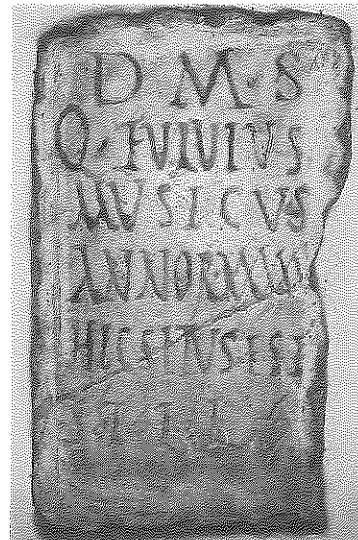 D M · S
Q · FVLVIVS
MVSICVS
ANNOR
HIC SITVS EST